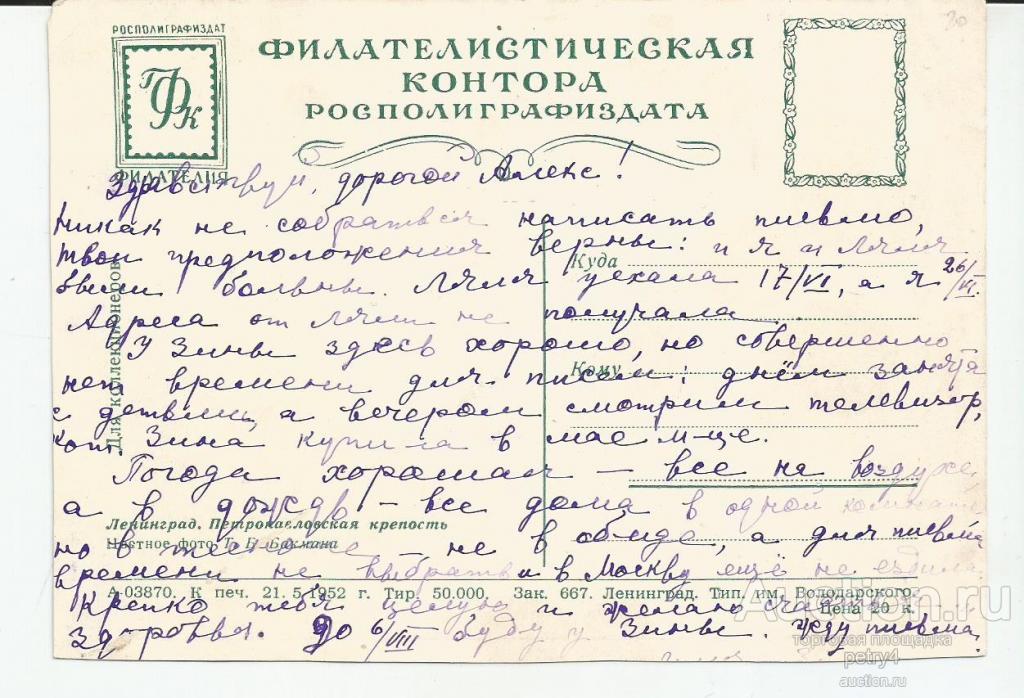 РОСПОЛИГРАФИЗДАТ
ГФК
ФИЛАТЕЛИЯ
ФИЛАТЕЛИСТИЧЕСКАЯ
КОНТОРА
РОСПОЛИГРАФИЗДАТА
20
Здравствуй, дорогой Алекс!
Никак не собраться написать письмо,
твои предположения верны: и я и Ляля
были больны. Ляля уехала 17/VI, а я 26/VI.
Адреса от Ляли не получала.
У Зины здесь хорошо, но совершенно
нет времени для писем: днём занята
с детьми, а вечером смотрим телевизор,
кот. Зина купила в мае м-це.
Погода хорошая – все на воздухе
а в дождь – все дома в одной комнате
но в тесноте – не в обиде, а для письма
времени не выбрать и в Москву ещё не ездила
Крепко тебя целую и желаю счастья,
здоровья. До 6/VIII буду у Зины. Жду письма.
Куда
Кому
Для коллекционеров
Ленинград. Петропавловская крепость
Цветное фото Т. Б. Бакмана
А-03870. К печ. 21.5.1952 г. Тир. 50.000. Зак. 667. Ленинград. Тип. им. Володарского.
Цена 20 к.
Auction.ru
торговая площадка
petry4
auction.ru